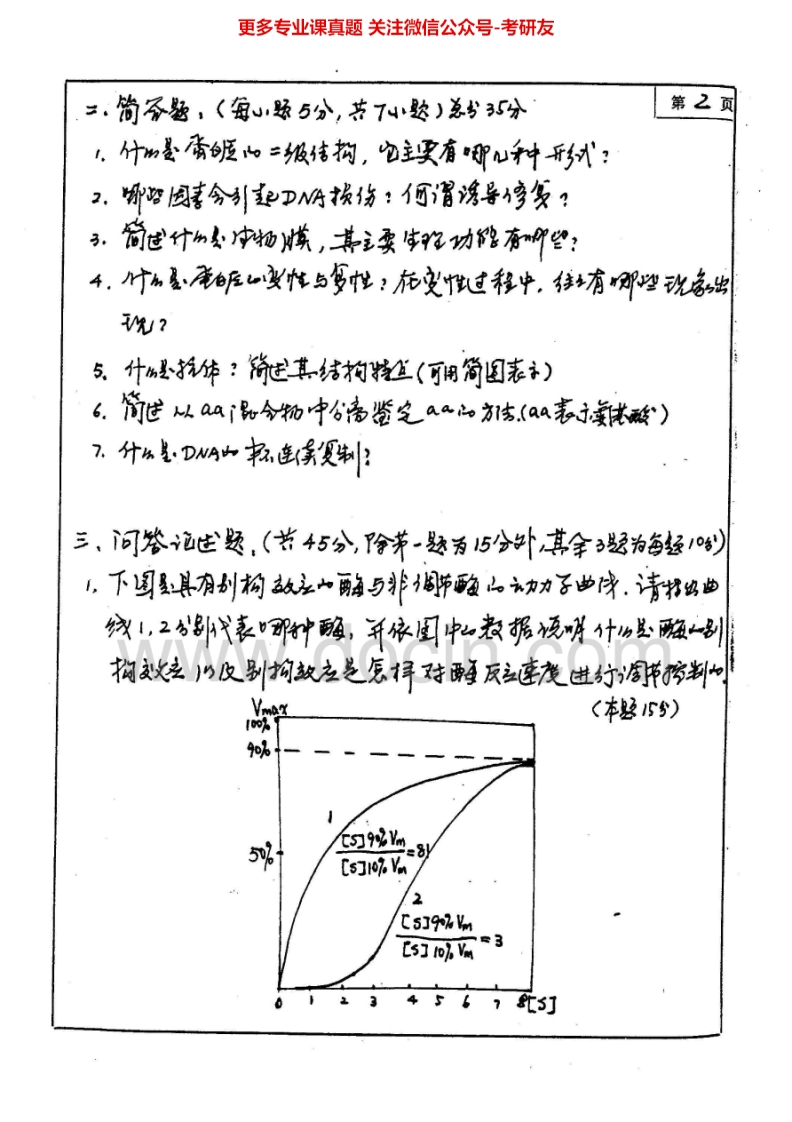 更多专业课真题 关注微信公众号-考研友
第 2 页
二、简答题：（每小题5分，共7小题）总分35分
1. 什么是蛋白质的二级结构，它主要有哪几种形式？
2. 哪些因素会引起DNA损伤？何谓诱导修复？
3. 简述什么是生物膜，其主要生理功能有哪些？
4. 什么是蛋白质的变性与复性？在变性过程中，往往有哪些现象出
现？
5. 什么是抗体？简述其结构特点（可用简图表示）
6. 简述从aa混合物中分离鉴定aa的方法.（aa表示氨基酸）
7. 什么是DNA的半不连续复制？
三、问答论述题.（共45分，除第一题为15分外，其余3题为每题10分）
1. 下图是具有别构效应的酶与非调节酶的动力学曲线. 请指出曲
线1, 2分别代表哪种酶，并依图中的数据说明什么是酶的别
构效应以及别构效应是怎样对酶反应速度进行调节控制的.
（本题15分）
www.docin.com
Vmax
100%
90%
50%
1
[S]90%Vm
=81
[S]10%Vm
2
[S]90%Vm
=3
[S]10%Vm
0 1 2 3 4 5 6 7 8[S]